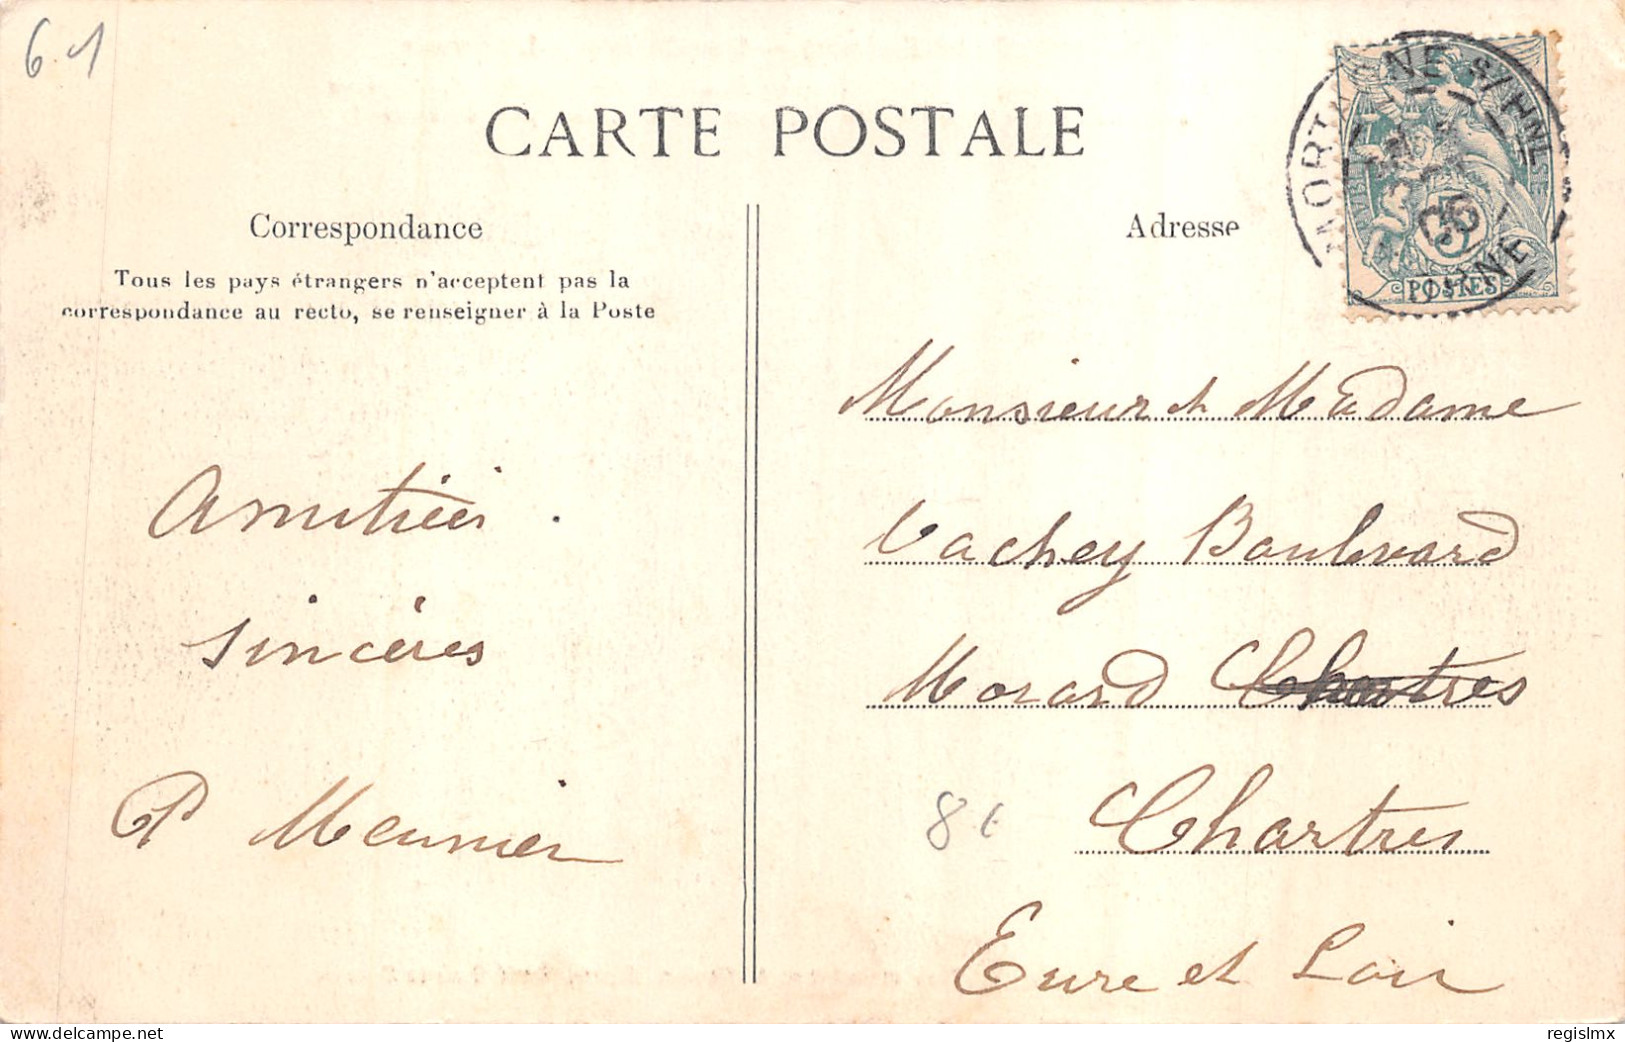 61
CARTE POSTALE
Correspondance
Tous les pays étrangers n'acceptent pas la
correspondance au recto, se renseigner à la Poste
Adresse
MORTAGNE S/HNE
ORNE
5
POSTES
Monsieur et Madame
Vachey Boulevard
Morard Chartres
Chartres
Eure et Loir
Amitiées
sincères
P Meunier
8€
delcampe.net
regislmx